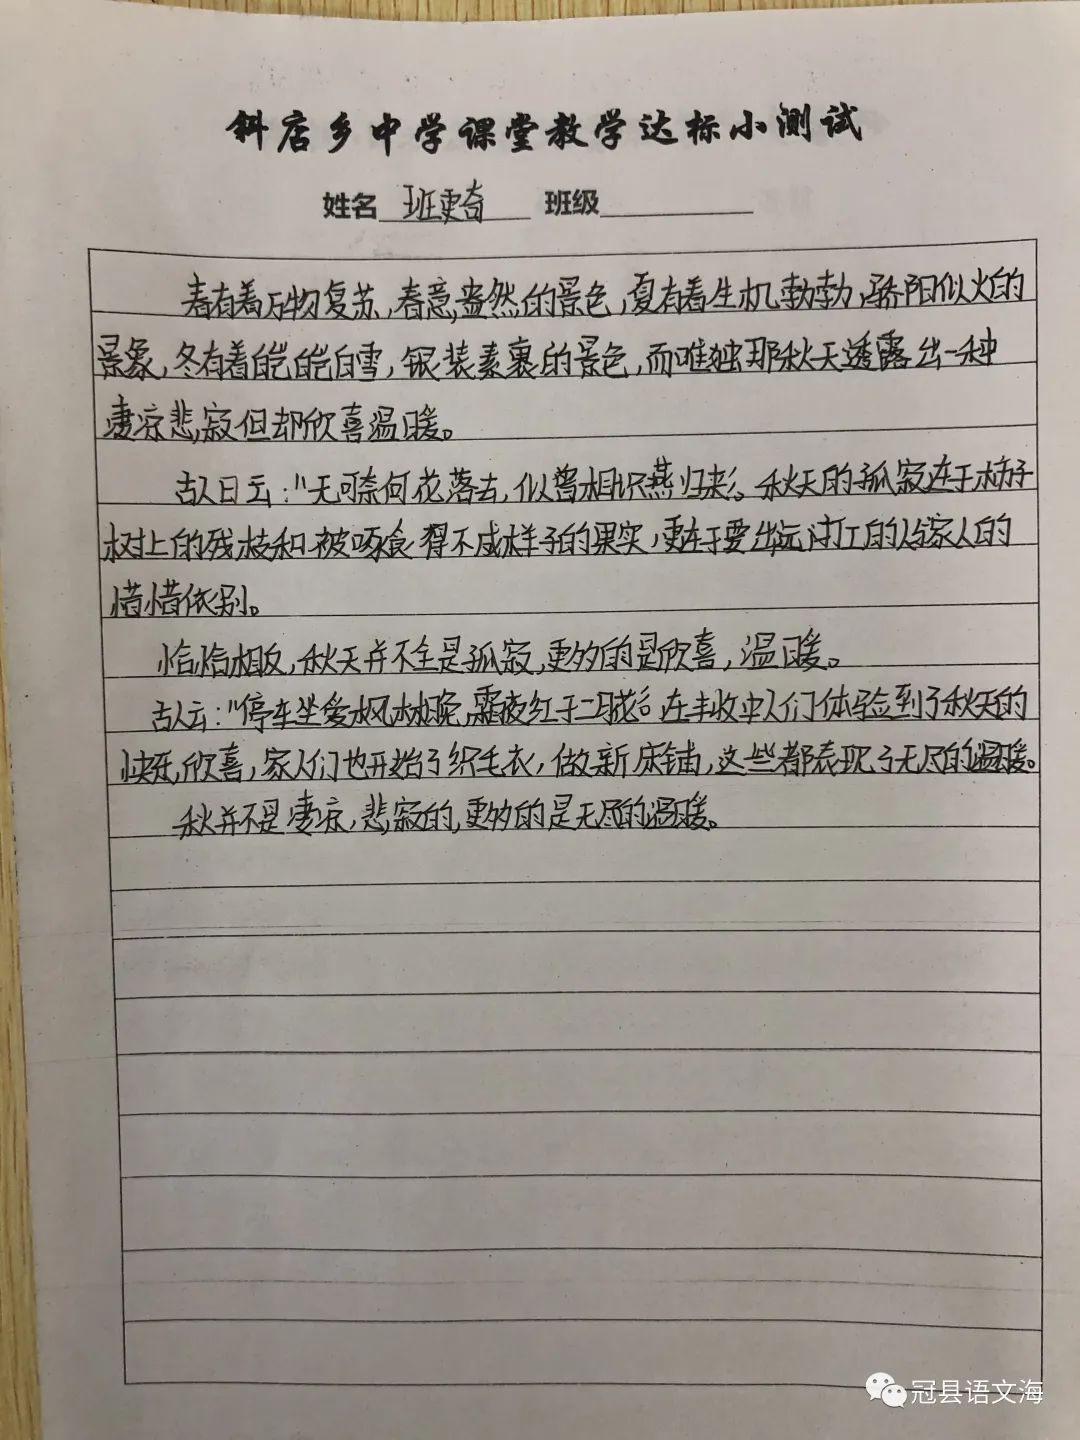 斜店乡中学课堂教学达标小测试
姓名 班更奇 班级
春有着万物复苏,春意盎然的景色,夏有着生机勃勃,骄阳似火的
景象,冬有着皑皑白雪,银装素裹的景色,而唯独那秋天透露出一种
凄凉悲寂但却欣喜温暖。
古人曰云:"无可奈何花落去,似曾相识燕归来"。秋天的孤寂在于柿子
树上的残枝和被啄食得不成样子的果实,更在于要出远门打工的人与家人的
惜惜依别。
恰恰相反,秋天并不全是孤寂,更多的是欣喜,温暖。
古人云:"停车坐爱枫林晚,霜夜红于二月花"。在丰收中人们体验到了秋天的
快乐,欣喜,家人们也开始了织毛衣,做新床铺,这些都表现了无尽的温暖。
秋并不是凄凉,悲寂的,更多的是无尽的温暖。
冠县语文海